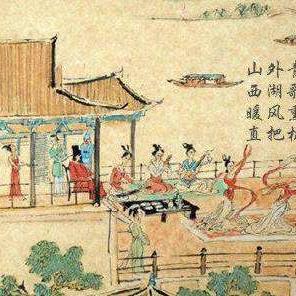 山外青
西湖歌
暖风熏
直把杭